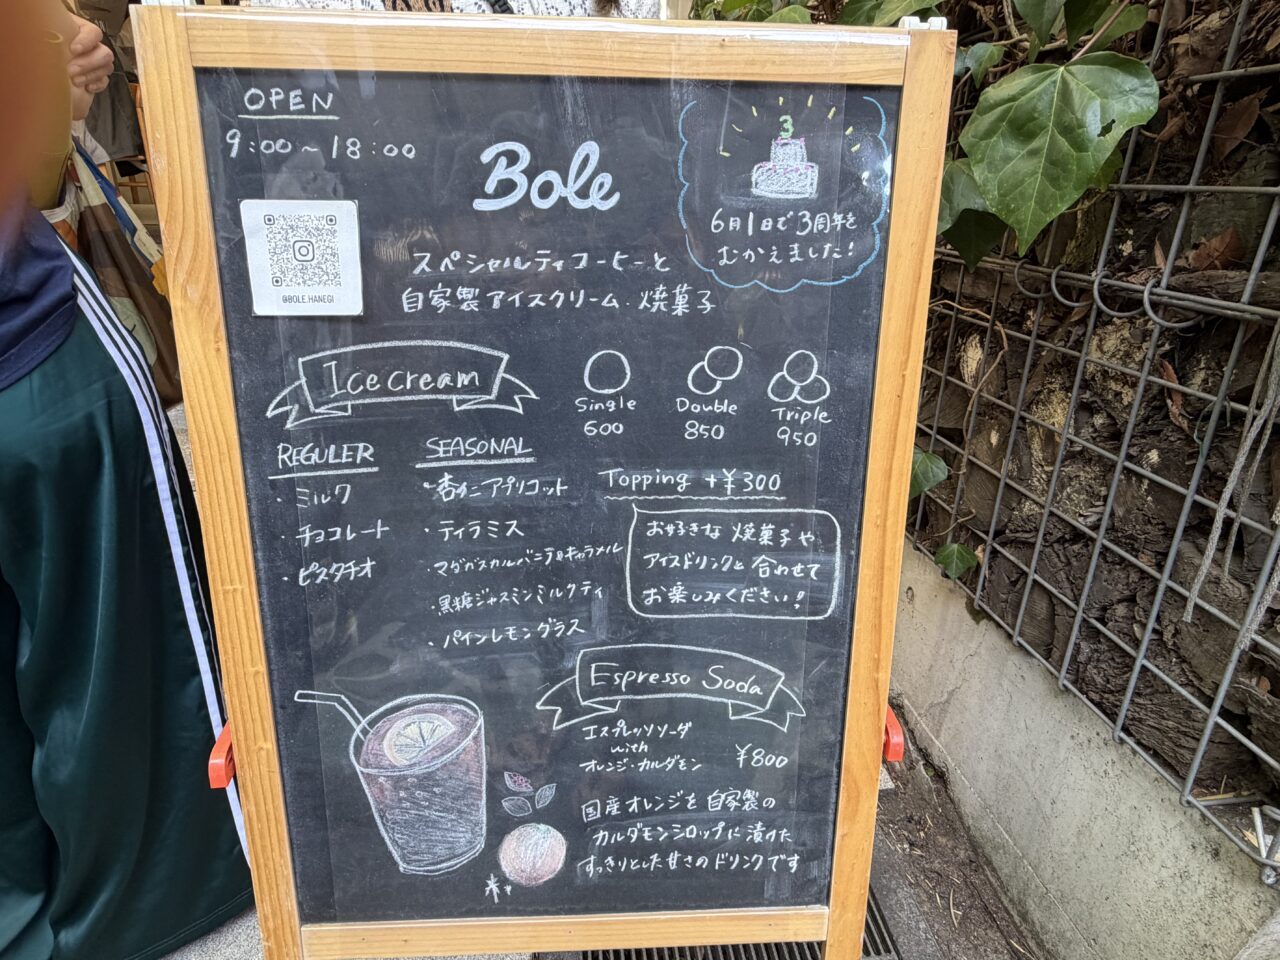 OPEN
9:00~18:00
Bole
3
6月1日で3周年を
むかえました!
@BOLE.HANEGI
スペシャルティコーヒーと
自家製アイスクリーム・焼菓子
Ice cream
Single
600
Double
850
Triple
950
REGULER
・ミルク
・チョコレート
・ピスタチオ
SEASONAL
・杏仁アプリコット
・ティラミス
・マダガスカルバニラ&キャラメル
・黒糖ジャスミンミルクティ
・パインレモングラス
Topping +¥300
お好きな焼菓子や
アイスドリンクと合わせて
お楽しみください!
Espresso Soda
エスプレッソソーダ
with
オレンジ・カルダモン
¥800
国産オレンジを自家製の
カルダモンシロップに漬けた
すっきりとした甘さのドリンクです